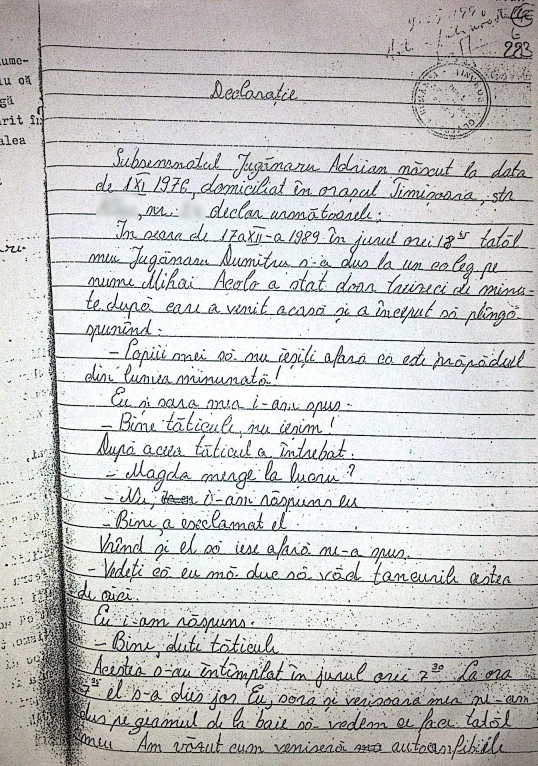 ume-
lu că
gă
arit în
alea
283
Declarație
Subsemnatul Jugănaru Adrian născut la data
de 1 XI 1976, domiciliat în orașul Timișoara, str
nr. declar următoarele:
În seara de 17 a XII-a 1989 în jurul orei 18³⁵ tatăl
meu Jugănaru Dumitru s-a dus la un coleg pe
nume Mihai Acolo a stat doar treizeci de minu-
te după care a venit acasă și a început să plîngă
spunînd:
- Copiii mei să nu ieșiți afară că este prăpădul
din lumea minunată!
Eu și sora mea i-am spus.
- Bine tăticule, nu ieșim!
După aceea tăticul a întrebat.
- Magda merge la lucru?
- Nu, i-am răspuns eu
- Bine, a exclamat el
Vrînd și el să iese afară ne-a spus.
- Vedeți că eu mă duc să văd tancurile astea
de aici.
Eu i-am răspuns.
- Bine, duti tăticule
Acestea s-au întîmplat în jurul orei 7³⁰ La ora
7³⁵ el s-a dus jos Eu, sora și verișoara mea ne-am
dus pe geamul de la baie să vedem ce face tatăl
meu Am văzut cum veniseră autoamfibiile